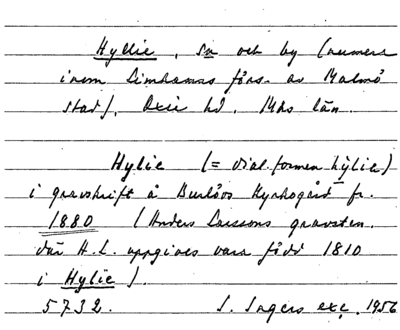 Hyllie, sn och by (numera
inom Limhamns förs. av Malmö
stad), Oxie hd. Mhs län.
Hylie (= dial. formen hylie)
i gravskrift å Burlövs Kyrkogård fr.
1880 (Anders Larssons gravsten.
där H.L. uppgives vara född 1810
i Hylie).
5732. S. Ingers exc. 1956